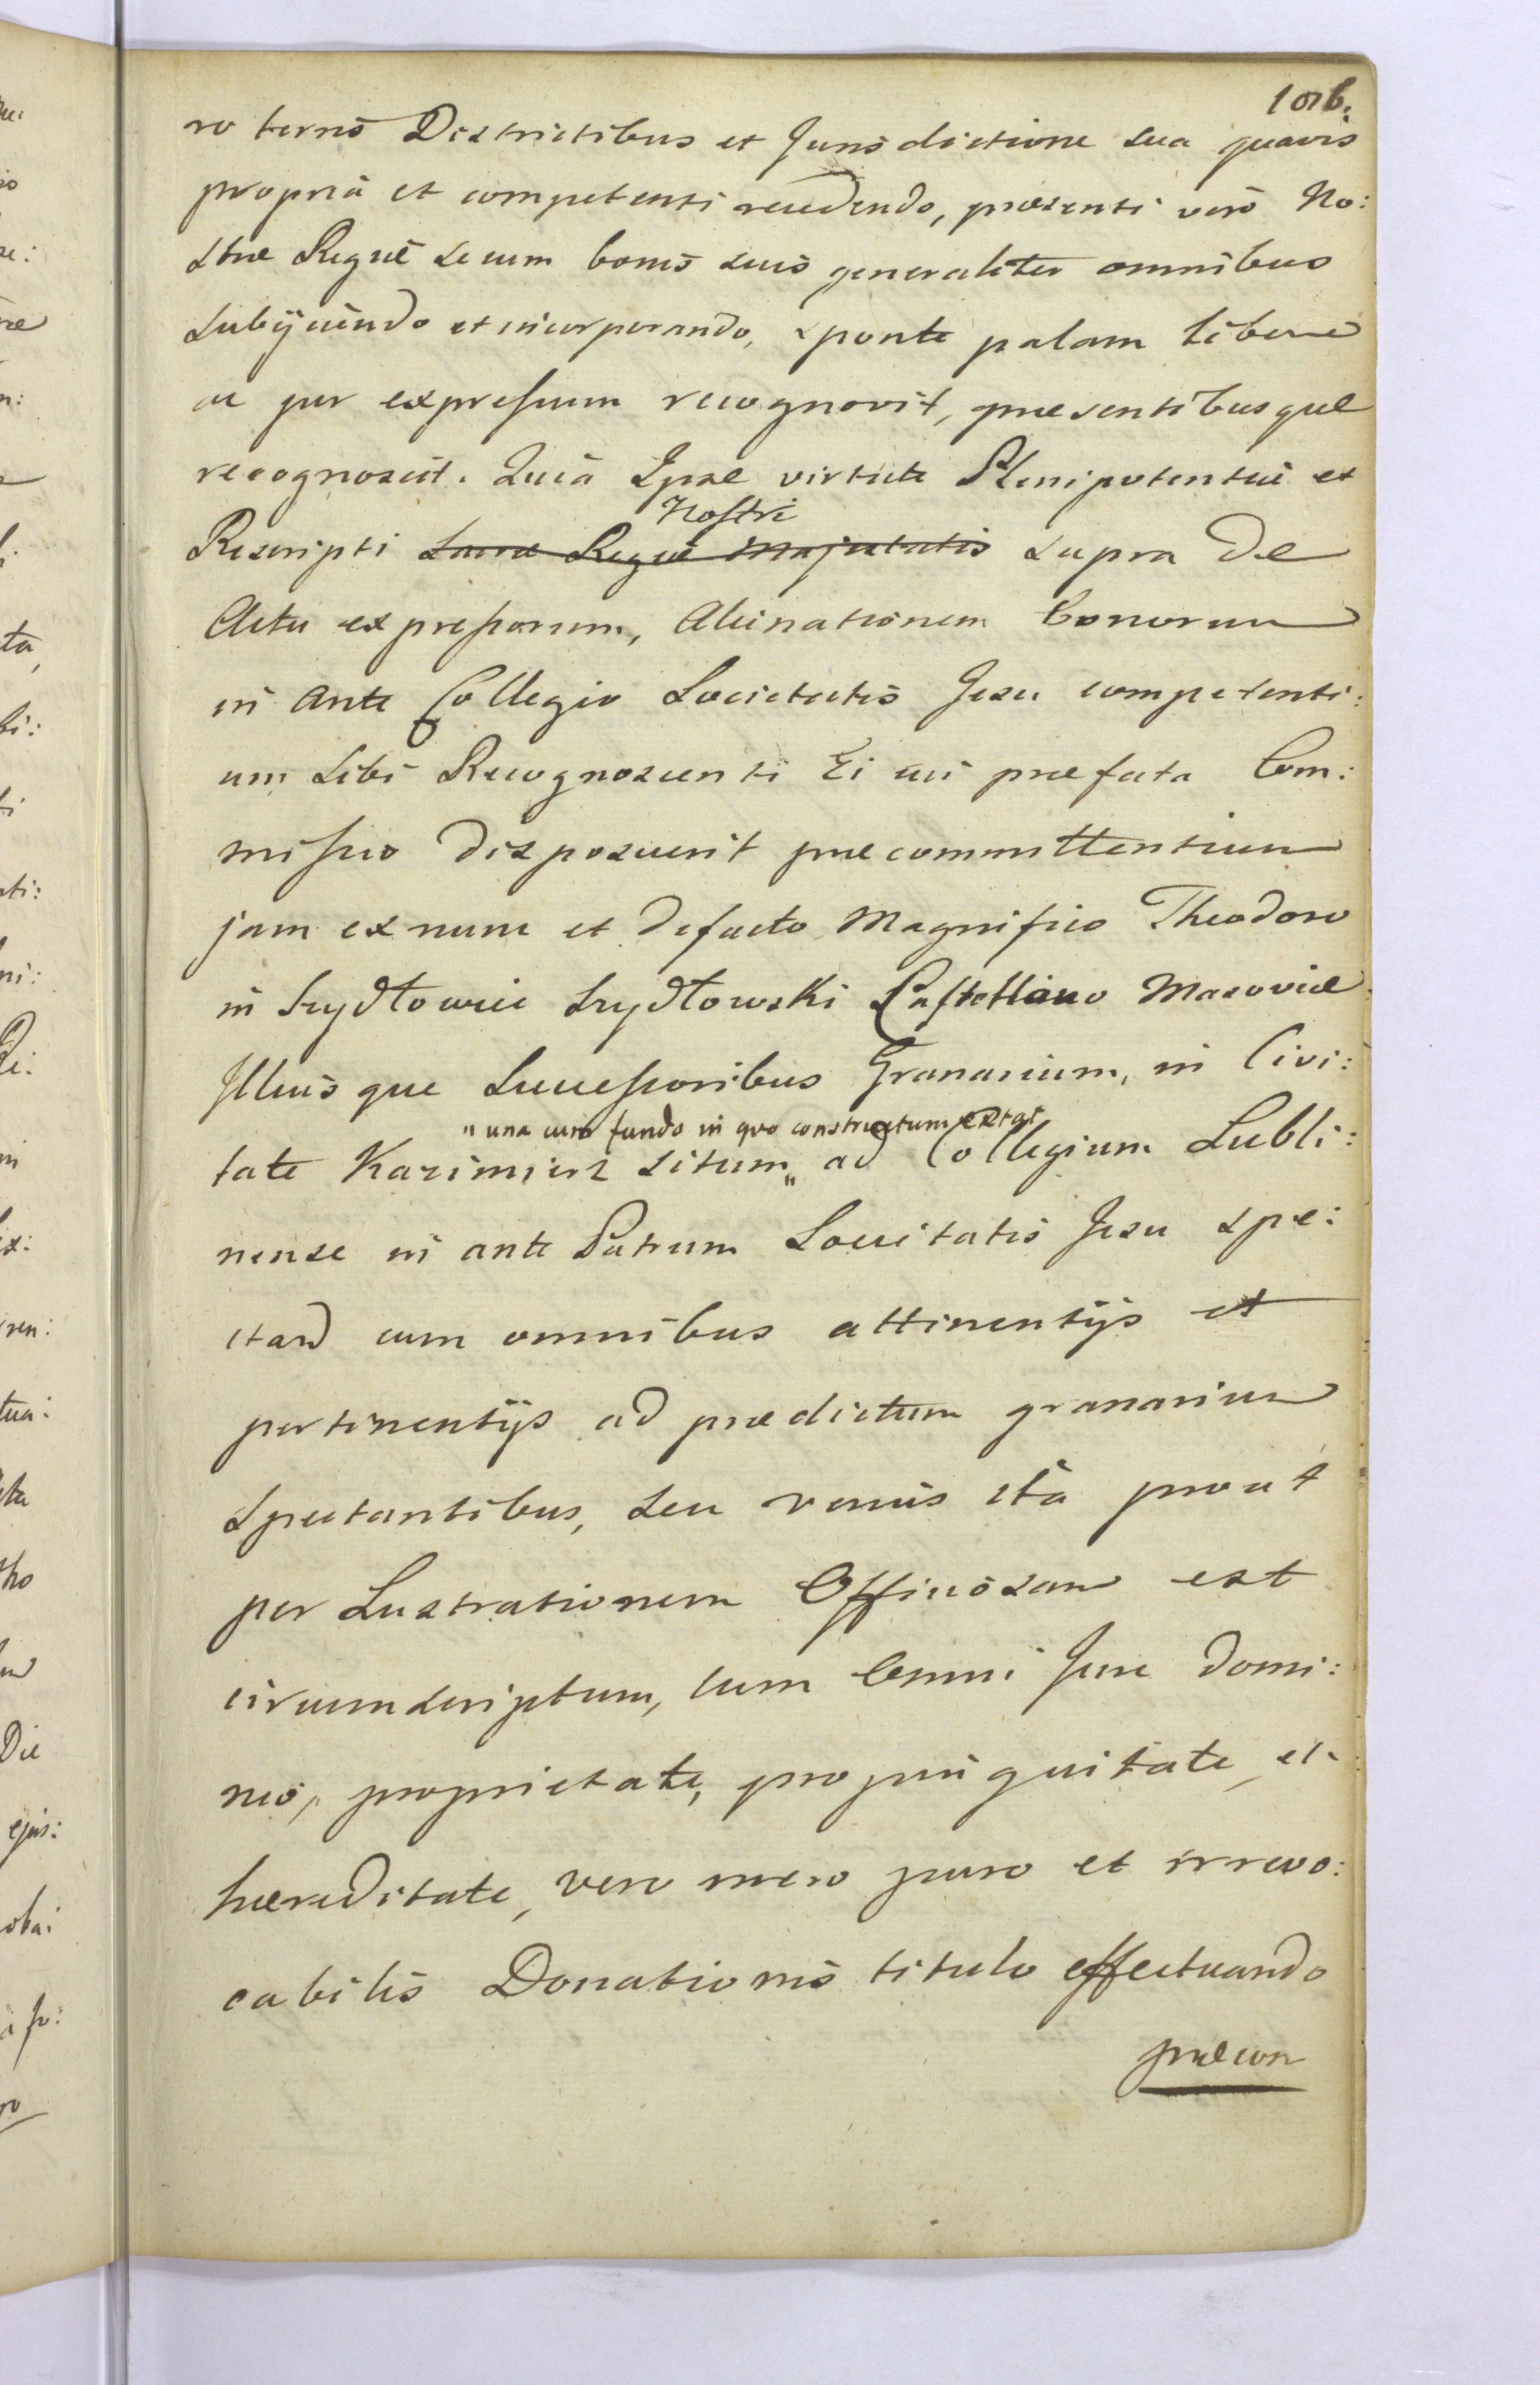 1016.
ro terris Districtibus et Jurisdictione sua quavis
propria et competenti recedendo, præsenti vero No:
stræ Regiæ se cum bonis suis generaliter omnibus
subijciendo et incorporando, sponte palam libere
ac per expressum recognovit, præsentibusque
recognoscit. Quia Ipse virtute Plenipotentiæ et
Nostri
Rescripti Sacræ Regiæ Majestatis supra de
Actu expressorum, Alienationem bonorum
in ante Collegio Societatis Jesu competenti:
um sibi Recognoscenti Ei cui præfata Com:
missio disposuerit præcommittentium
jam ex nunc et defacto Magnifico Theodoro
in Szydłowiec Szydłowski Castellano Masoviæ
Illiusque Successoribus Granarium, in Civi:
„ una cum fundo in quo constructum extat
tate Kazimierz situm „ ad Collegium Lubli:
nense in ante Patrum Societatis Jesu spe:
ctans cum omnibus attinentijs et
pertinentijs ad prædictum granarium
spectantibus, seu verius ita prout
per Lustrationem Officiosam est
circumscriptum, cum Omni Jure domi:
nio, proprietate, propinquitate, et
hæreditate, vero mero puro et irrevo:
cabilis Donationis titulo effectuando
præcon